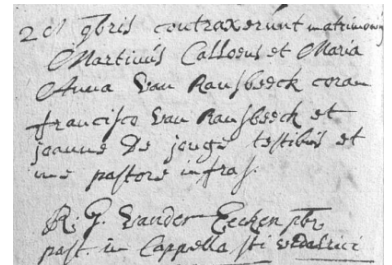 20 9bris contraxerunt matrimony
Martinus Calloens et Maria
Anna Van Ransbeeck coram
francisco Van Ransbeeck et
joanne De jonge testibus et
me pastore infras.
R. G. Vander Eecken pbr
past. in Cappella sti vdalrici